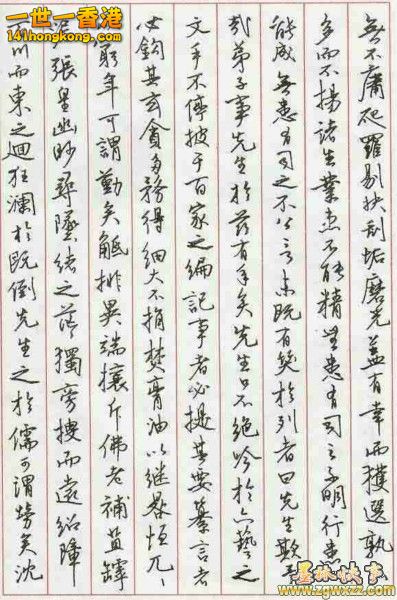 一世一香港
141hongkong.com
無不庸爬羅剔抉刮垢磨光蓋有幸而獲選孰
多而不揚諸生業患不能精無患有司之不明行患
能成無患有司之不公言未既有笑於列者曰先生欺予
哉弟子事先生於茲有年矣先生口不絕吟於六藝之
文手不停披于百家之編記事者必提其要纂言者
必鉤其玄貪多務得細大不捐焚膏油以繼晷恆兀〻
窮年可謂勤矣觝排異端攘斥佛老補苴罅
張皇幽眇尋墜緒之茫獨旁搜而遠紹障
百川而東之迴狂瀾於既倒先生之於儒可謂勞矣沈
墨林快事
www.zgwxzz.com